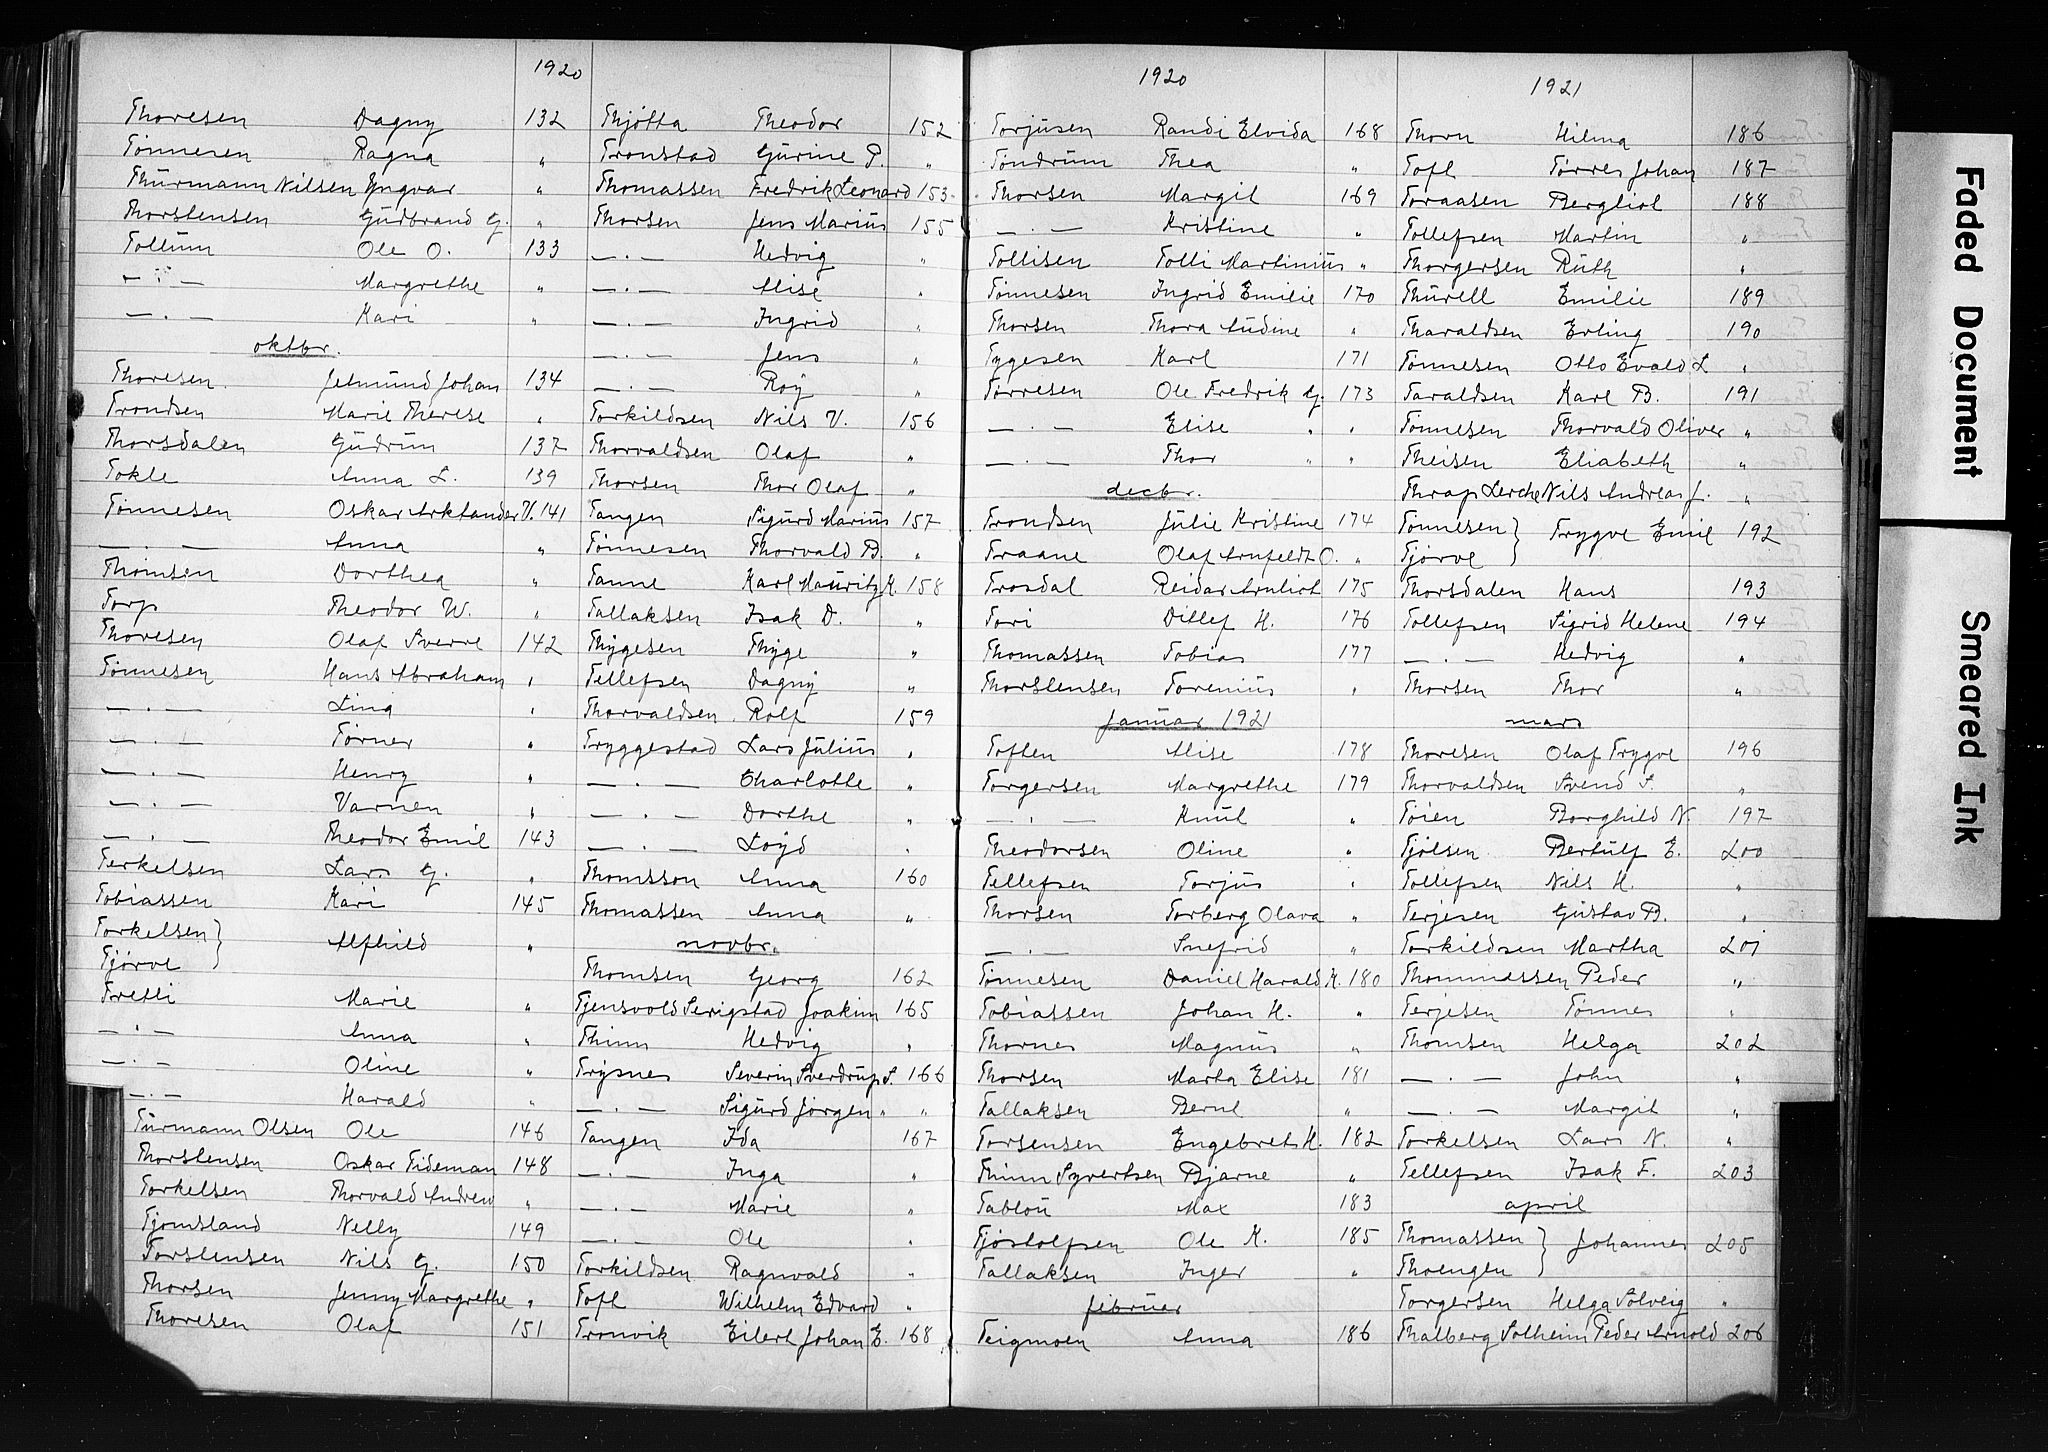 1920
Thoresen Dagny 132
Tönnesen Ragna "
Thurmann Nilsen Yngvar "
Thorstensen Gudbrand G. "
Tollum Ole O. 133
— . — Margrethe "
— . — Kari "
oktbr.
Thoresen Jelmund Johan 134
Trondsen Marie Therese "
Thorsdalen Gudrun 137
Tokle Anna L. 139
Tønnesen Oskar Arktander V. 141
— . — Anna "
Thomsen Dorthea "
Torp Theodor W. "
Thoresen Olaf Sverre 142
Tønnesen Hans Abraham "
— . — Lina "
— . — Tørner "
— . — Henry "
— . — Varnen "
— . — Theodor Emil 143
Terkelsen Lars G. "
Tobiassen Kari 145
Torkelsen } Alfhild "
Tjørve
Tretli Marie "
— . — Anna "
— . — Oline "
— . — Harald "
Turmann Olsen Ole 146
Thorstensen Oskar Tideman 148
Torkelsen Thorvald Andrew "
Tjomsland Nelly 149
Torstensen Nils G. 150
Thorsen Jenny Margrethe "
Thoresen Olaf 151
Thjötta Theodor 152
Tronstad Gurine P. "
Thomassen Fredrik Leonard 153
Thorsen Jens Marius 155
— . — Hedvig "
— . — Alise "
— . — Ingrid "
— . — Jens "
— . — Roy "
Torkildsen Nils V. 156
Thorvaldsen Olaf "
Thorsen Thor Olaf "
Tangen Sigurd Marius 157
Tönnesen Thorvald B. "
Tanne Karl Mauritz K. 158
Tallaksen Isak D. "
Thygesen Thyge "
Tellefsen Dagny "
Thorvaldsen Rolf 159
Tryggestad Lars Julius "
— . — Charlotte "
— . — Dorthe "
— . — Loyd "
Thomsson Anna 160
Thomassen Anna "
novbr.
Thomsen Georg 162
Tjensvold Serigstad Joakim 165
Thinn Hedvig "
Trysnes Severin Sverdrup S. 166
— . — Sigurd Jørgen "
Tangen Ida 167
— . — Inga "
— . — Marie "
— . — Ole "
Torkildsen Ragnvald "
Toft Wilhelm Edvard "
Tronvik Eilert Johan E. 168
1920
Torjusen Randi Elvida 168
Tøndrum Thea "
Thorsen Margit 169
— . — Kristine "
Tollisen Tolli Martinius "
Tønnesen Ingrid Emilie 170
Thorsen Thora Audine "
Tygesen Karl 171
Tørresen Ole Fredrik G. 173
— . — Elise "
— . — Thor "
decbr.
Trondsen Julie Kristine 174
Traane Olaf Arnfeldt O. "
Trosdal Reidar Arnliot 175
Tori Ditlef H. 176
Thomassen Tobias 177
Thorstensen Torenius "
Januar 1921
Toften Alise 178
Torgersen Margrethe 179
— . — Knut "
Theodorsen Oline "
Tellefsen Torjus "
Thorsen Torberg Olava "
— . — Snefrid "
Tønnesen Daniel Harald K. 180
Tobiassen Johan H. "
Thornes Magnus "
Thorsen Marta Elise 181
Tallaksen Bernt "
Torsensen Engebret H. 182
Thinn Syvertsen Bjarne "
Tablou Max 183
Tjøstolfsen Ole K. 185
Tallaksen Inger "
februer
Teigmoen Anna 186
1921
Thorn Hilma 186
Toft Tørres Johan 187
Toraasen Bergliot 188
Tollefsen Martin "
Thorgersen Ruth "
Thurell Emilie 189
Tharaldsen Erling 190
Tønnesen Otto Evald L "
Taraldsen Karl B. 191
Tønnesen Thorvald Oliver "
Theisen Eliabeth "
Thrap Lerche Nils Andreas J. "
Tønnesen } Trygve Emil 192
Tjørve
Thorsdalen Hans 193
Tollefsen Sigrid Helene 194
— . — Hedvig "
Thorsen Thor "
mars
Thoresen Olaf Trygve 196
Thorvaldsen Svend S. "
Tøien Borghild N. 197
Tjølsen Bertulf E. 200
Tollefsen Nils H. "
Terjesen Gustav B. "
Torkildsen Martha 201
Thommassen Peder "
Terjesen Tønnes "
Thomsen Helga 202
— . — John "
— . — Margit "
Torkelsen Lars N. "
Tellefsen Isak F. 203
april
Thomassen } Johannes 205
Thoengen
Torgersen Helga Solveig "
Thalberg Solheim Peder Arnold 206
Faded Document
Smeared Ink